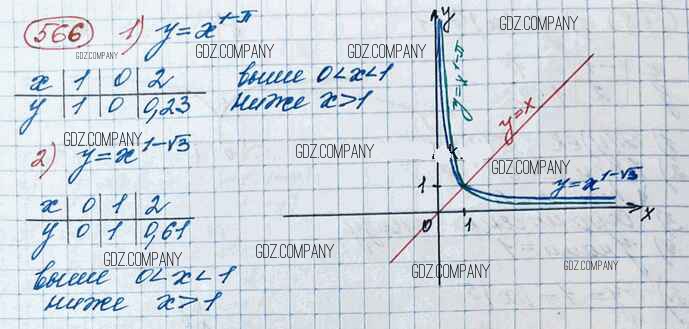 566 1) y = x^{1-π}
x | 1 | 0 | 2
y | 1 | 0 | 0,23
выше 0<x<1
ниже x>1
2) y = x^{1-√3}
x | 0 | 1 | 2
y | 0 | 1 | 0,61
выше 0<x<1
ниже x>1
y
y = x^{1-π}
y = x
y = x^{1-√3}
1
0
1
x
GDZ.COMPANY
GDZ.COMPANY
GDZ.COMPANY
GDZ.COMPANY
GDZ.COMPANY
GDZ.COMPANY
GDZ.COMPANY
GDZ.COMPANY
GDZ.COMPANY
GDZ.COMPANY
GDZ.COMPANY
GDZ.COMPANY